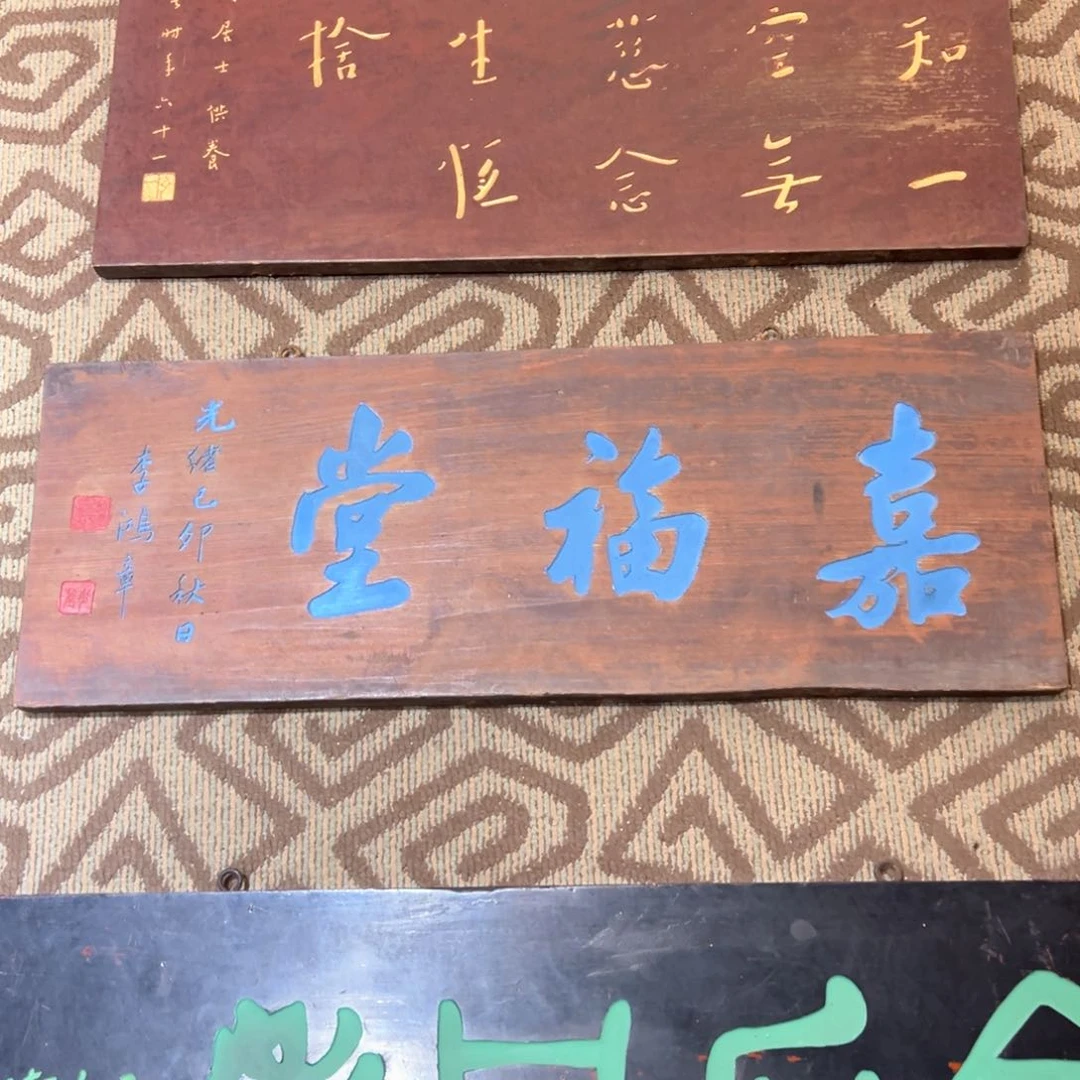 和一
空無
慈念
生恆
捨
居士供養
時年六十一
嘉福堂
光緒己卯秋日
李鴻章